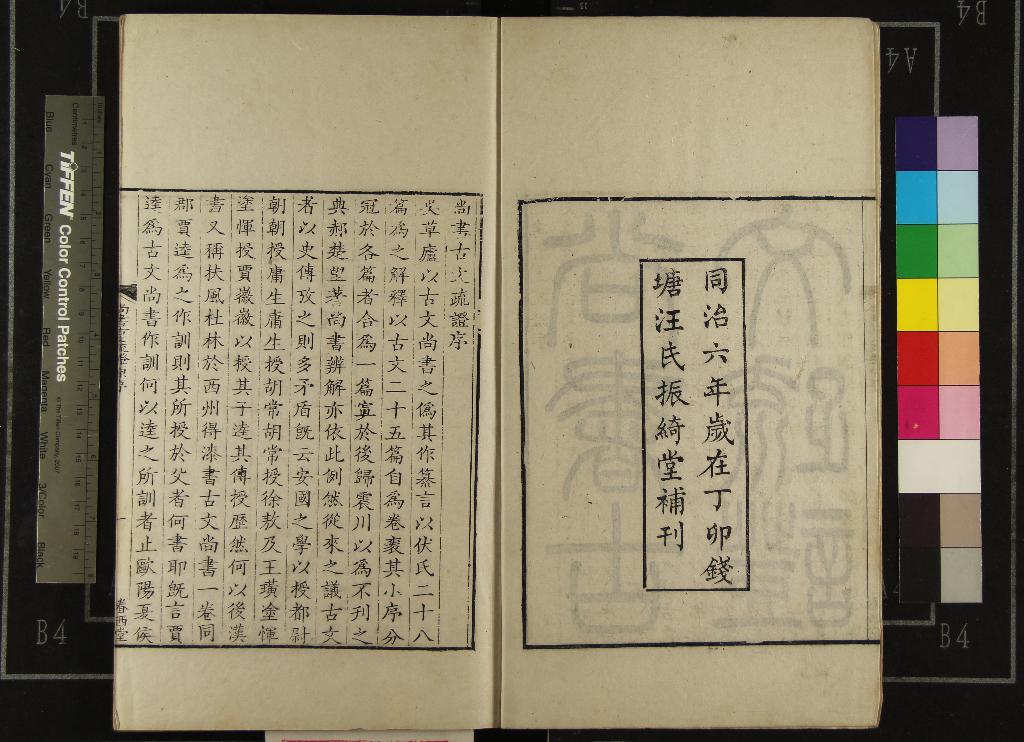 同治六年歲在丁卯錢
塘汪氏振綺堂補刊
尚書古文疏證序
吳草廬以古文尚書之僞其作纂言以伏氏二十八
篇爲之解釋以古文二十五篇自爲卷裹其小序分
冠於各篇者合爲一篇寘於後歸震川以爲不刊之
典郝楚望著尚書辨解亦依此例然從來之議古文
者以史傳攷之則多矛盾旣云安國之學以授都尉
朝朝授庸生庸生授胡常胡常授徐敖及王璜塗惲
塗惲授賈徽徽以授其子逵其傳授歷然何以後漢
書又稱扶風杜林於西州得漆書古文尚書一卷同
郡賈逵爲之作訓則其所授於父者何書耶旣言賈
逵爲古文尚書作訓何以逵之所訓者止歐陽夏侯
眷西堂
TIFFEN Color Control Patches
© The Tiffen Company, 2007
Centimetres
Inches
Blue Cyan Green Yellow Red Magenta White 3/Color Black
B4
B4
B4
B4
A4